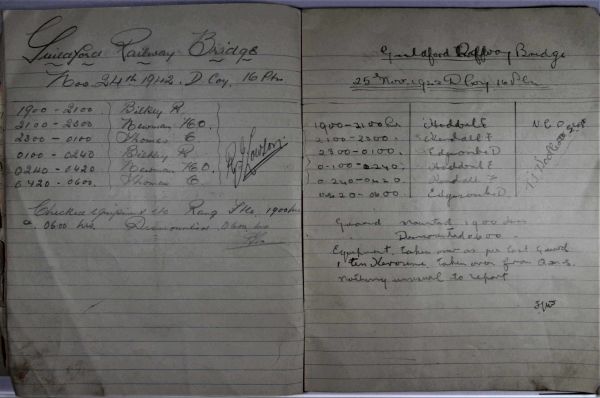 Guildford Railway Bridge
Nov 24th 1942. D Coy. 16 Pln
1900 - 2100. Bilkey R.
2100 - 2300 Newman H.O.
2300 - 0100 Thomas E
0100 - 0240 Bilkey R
0240 - 0420 Newman H.O.
0420 - 0600. Thomas E.
Checked Equipment 1900 hrs
0600 hrs. Dismounted 0600 hrs
Guildford Railway Bridge
25th Nov. 1942 D Coy 16 Pln
1900 - 2100 hr Haddrell E N.C.O.
2100 - 2300. Kendall F
2300 - 0100. Edgcombe D
0-100 - 0240. Haddrell E
0240 - 0420. Kendall F
0420 - 0600. Edgcombe D
Guard mounted 1900 hrs
Dismounted 0600.
Equipment taken over as per last Guard
1 tin Kerosene taken over from Q.M.S.
Nothing unusual to report